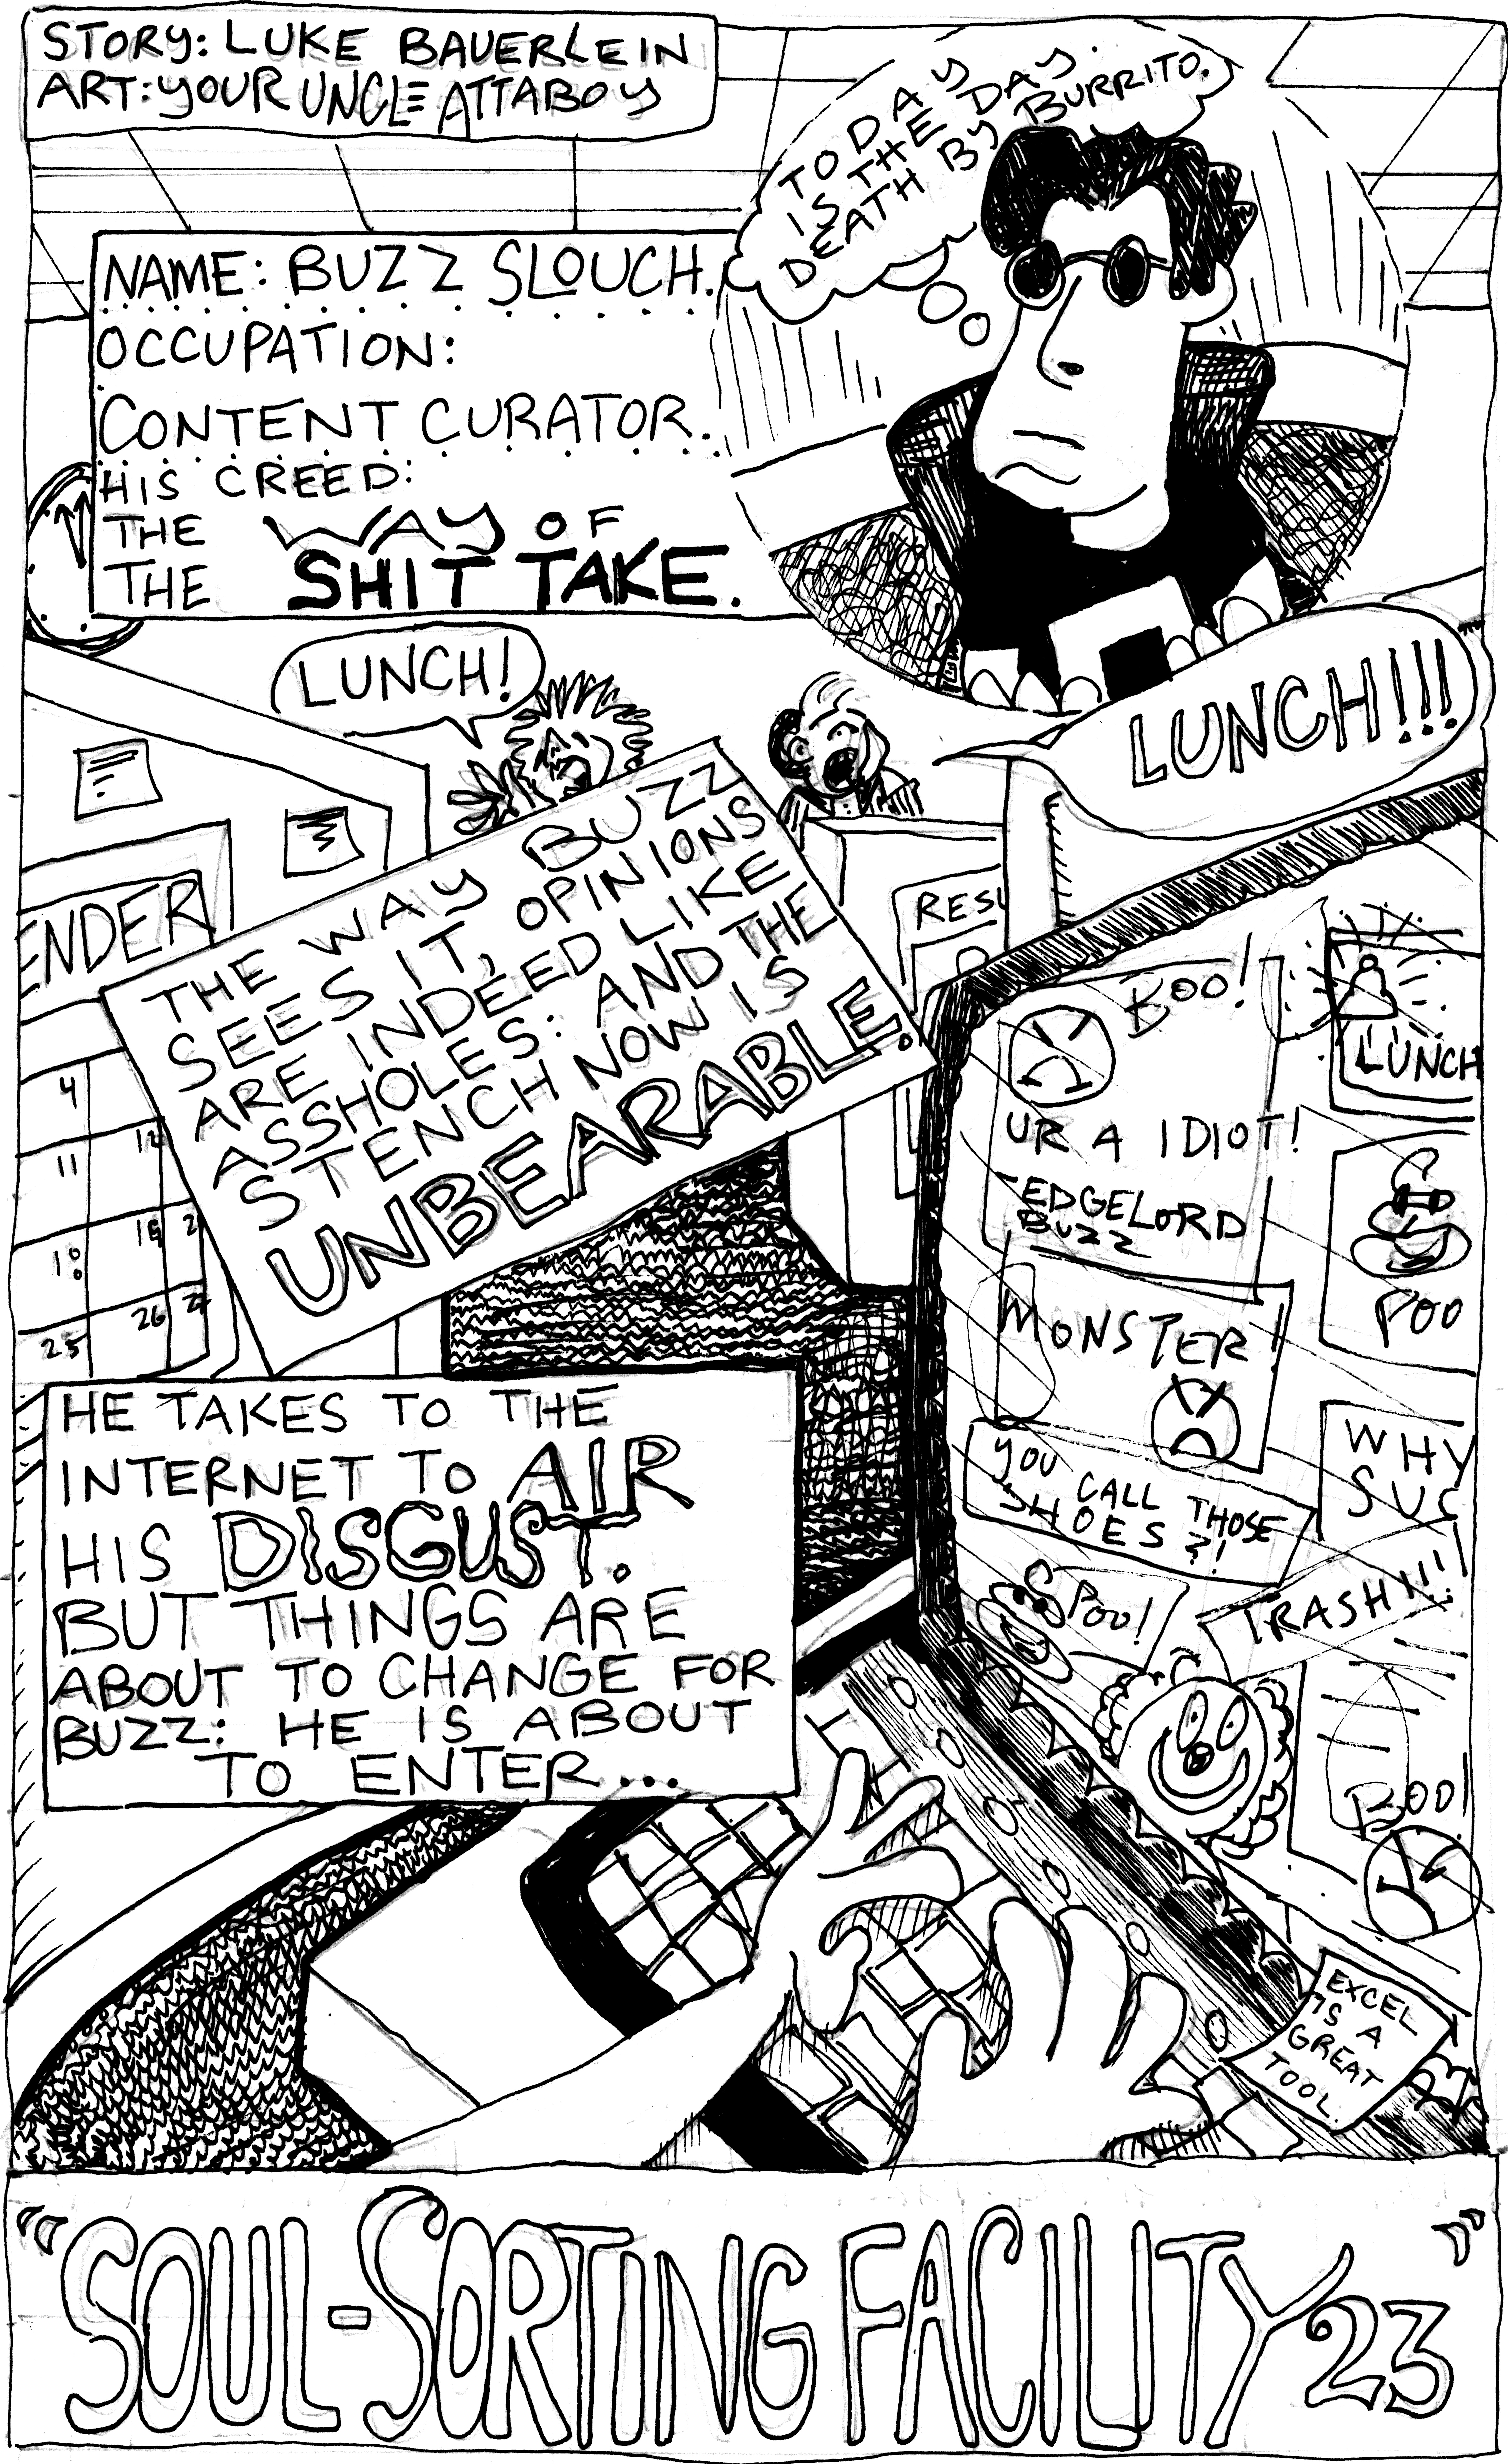 STORY: LUKE BAUERLEIN
ART: YOUR UNCLE ATTABOY
TODAY
IS THE DAY.
DEATH BY BURRITO.
NAME: BUZZ SLOUCH.
OCCUPATION:
CONTENT CURATOR.
HIS CREED:
THE WAY OF
THE SHIT TAKE.
LUNCH!
LUNCH!!!
THE WAY BUZZ
SEES IT, OPINIONS
ARE INDEED LIKE
ASSHOLES: AND THE
STENCH NOW IS
UNBEARABLE.
ENDER
4
11 12
18 19 2
25 26 27
RESU
BOO!
UR A IDIOT!
-EDGELORD
BUZZ
LUNCH
POO
MONSTER!
YOU CALL THOSE
SHOES?!
WHY
SUC
SPOO!
TRASH!!!
BOO!
EXCEL
IS A
GREAT
TOOL.
HE TAKES TO THE
INTERNET TO AIR
HIS DISGUST.
BUT THINGS ARE
ABOUT TO CHANGE FOR
BUZZ: HE IS ABOUT
TO ENTER...
"SOUL-SORTING FACILITY 23"